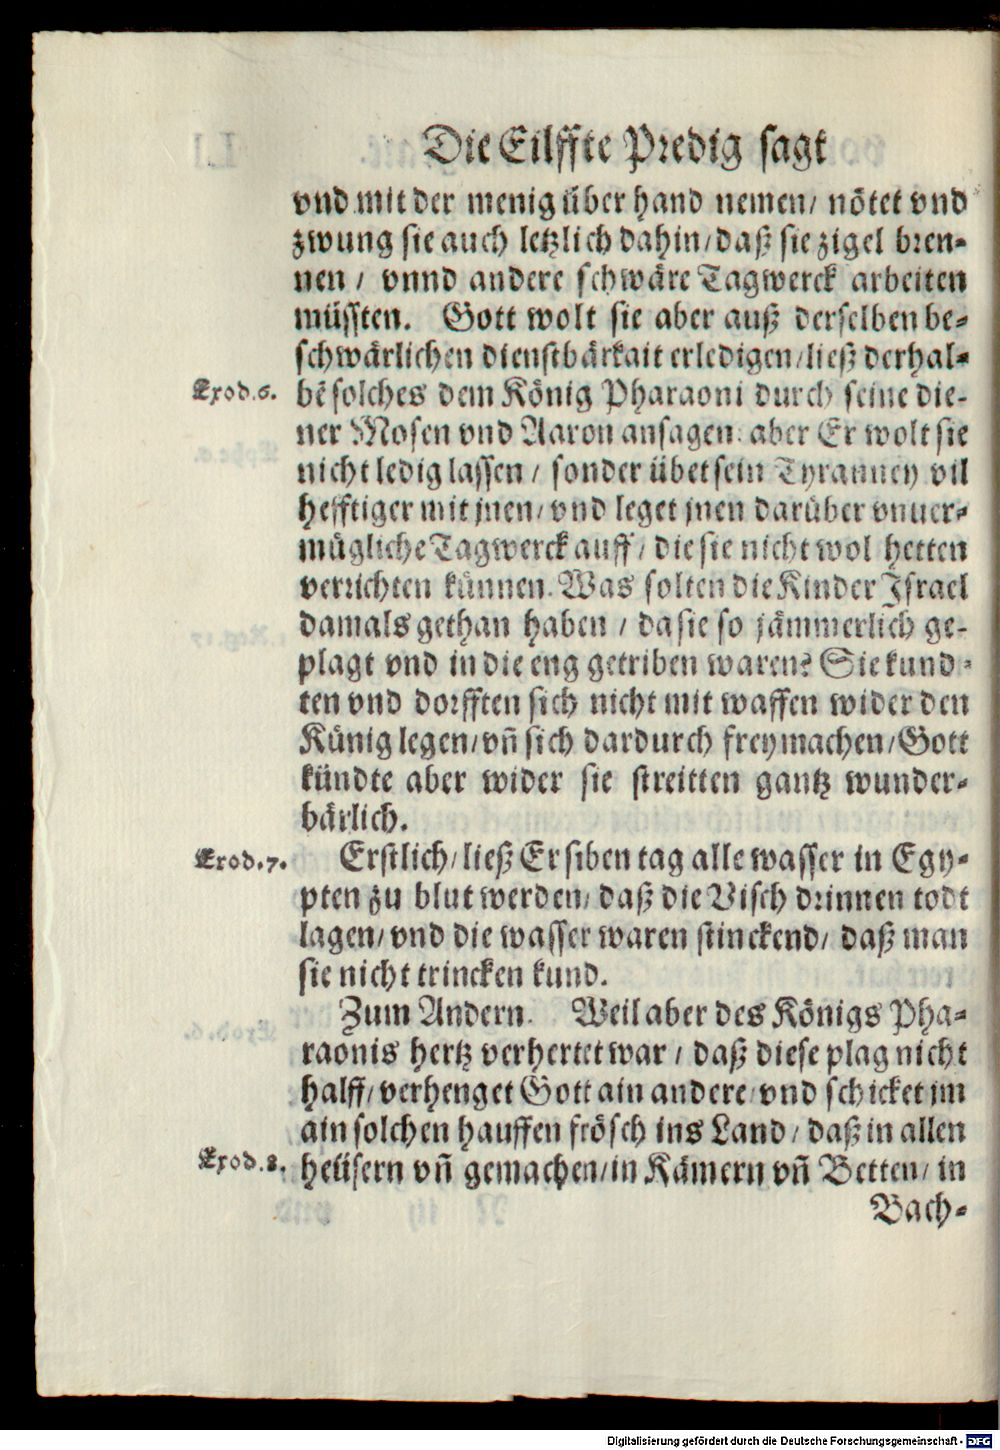 Die Eilffte Predig sagt
vnd mit der menig über hand nemen/ nötet vnd
zwung sie auch letzlich dahin/ daß sie zigel bren-
nen / vnnd andere schwäre Tagwerck arbeiten
müssten. Gott wolt sie aber auß derselben be-
schwärlichen dienstbärkait erledigen/ ließ derhal-
Exod.6. bẽ solches dem König Pharaoni durch seine die-
ner Mosen vnd Aaron ansagen: aber Er wolt sie
nicht ledig lassen / sonder übet sein Tyranney vil
hefftiger mit jnen/ vnd leget jnen darüber vnuer-
mügliche Tagwerck auff/ die sie nicht wol hetten
verrichten künnen. Was solten die Kinder Israel
damals gethan haben / da sie so jämmerlich ge-
plagt vnd in die eng getriben waren? Sie kund-
ten vnd dorfften sich nicht mit waffen wider den
Künig legen/ vñ sich dardurch frey machen/ Gott
kündte aber wider sie streitten gantz wunder-
bärlich.
Exod.7. Erstlich/ ließ Er siben tag alle wasser in Egy-
pten zu blut werden/ daß die Visch drinnen todt
lagen/ vnd die wasser waren stinckend/ daß man
sie nicht trincken kund.
Zum Andern. Weil aber des Königs Pha-
raonis hertz verhertet war / daß diese plag nicht
halff/ verhenget Gott ain andere/ vnd schicket jm
ain solchen hauffen frösch ins Land/ daß in allen
Exod.8. heüsern vñ gemachen/ in Kämern vñ Betten/ in
Bach-
Digitalisierung gefördert durch die Deutsche Forschungsgemeinschaft - DFG